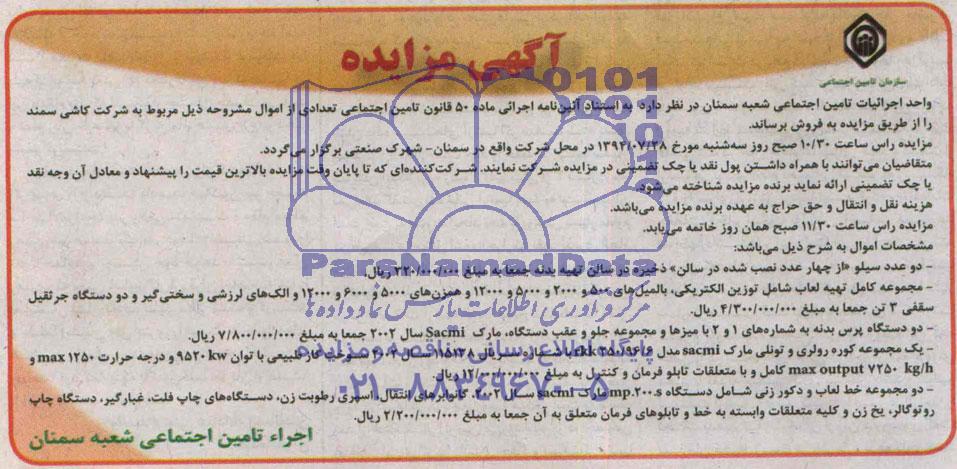 آگهی مزایده
سازمان تامین اجتماعی
واحد اجرائیات تامین اجتماعی شعبه سمنان در نظر دارد به استناد آئین‌نامه اجرائی ماده ۵۰ قانون تامین اجتماعی تعدادی از اموال مشروحه ذیل مربوط به شرکت کاشی سمند
را از طریق مزایده به فروش برساند.
مزایده راس ساعت ۱۰/۳۰ صبح روز سه‌شنبه مورخ ۱۳۹۴/۰۷/۲۸ در محل شرکت واقع در سمنان- شهرک صنعتی برگزار می‌گردد.
متقاضیان می‌توانند با همراه داشتن پول نقد یا چک تضمینی در مزایده شرکت نمایند. شرکت‌کننده‌ای که تا پایان وقت مزایده بالاترین قیمت را پیشنهاد و معادل آن وجه نقد
یا چک تضمینی ارائه نماید برنده مزایده شناخته می‌شود.
هزینه نقل و انتقال و حق حراج به عهده برنده مزایده می‌باشد.
مزایده راس ساعت ۱۱/۳۰ صبح همان روز خاتمه می‌یابد.
مشخصات اموال به شرح ذیل می‌باشد:
- دو عدد سیلو «از چهار عدد نصب شده در سالن» ذخیره در سالن تهیه بدنه جمعا به مبلغ ۳۲۰/۰۰۰/۰۰۰ ریال.
- مجموعه کامل تهیه لعاب شامل توزین الکتریکی، بالمیل‌های ۵۰۰ و ۲۰۰۰ و ۵۰۰۰ و ۱۲۰۰۰ و همزن‌های ۵۰۰۰ و ۶۰۰۰ و ۱۲۰۰۰ و الک‌های لرزشی و سختی‌گیر و دو دستگاه جرثقیل
سقفی ۳ تن جمعا به مبلغ ۴/۳۰۰/۰۰۰/۰۰۰ ریال.
- دو دستگاه پرس بدنه به شماره‌های ۱ و ۲ با میزها و مجموعه جلو و عقب دستگاه، مارک Sacmi سال ۲۰۰۲ جمعا به مبلغ ۷/۸۰۰/۰۰۰/۰۰۰ ریال.
- یک مجموعه کوره رولری و تونلی مارک sacmi مدل با شماره سریال سال ۲۰۰۲ سوخت گاز طبیعی با توان ۹۵۲۰ kw و درجه حرارت max ۱۲۵۰ و
max output ۷۲۵۰ kg/h کامل و با متعلقات تابلو فرمان و کنترل به مبلغ ۱۲/۰۰۰/۰۰۰/۰۰۰ ریال.
- دو مجموعه خط لعاب و دکور زنی شامل دستگاه mp.۲۰۰.s مارک sacmi سال ۲۰۰۲، کانوایرهای انتقال، اسپری رطوبت زن، دستگاه‌های چاپ فلت، غبارگیر، دستگاه چاپ
روتوگالر، یخ زن و کلیه متعلقات وابسته به خط و تابلوهای فرمان متعلق به آن جمعا به مبلغ ۲/۲۰۰/۰۰۰/۰۰۰ ریال.
اجراء تامین اجتماعی شعبه سمنان
ParsNamadData
مرکز فرآوری اطلاعات پارس نماد داده‌ها
پایگاه اطلاع رسانی مناقصه و مزایده
۰۲۱-۸۸۳۴۹۶۷۰-۵